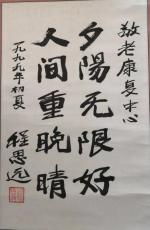 敬老康复中心
夕陽无限好
人间重晚晴
一九九九年初夏
程思远